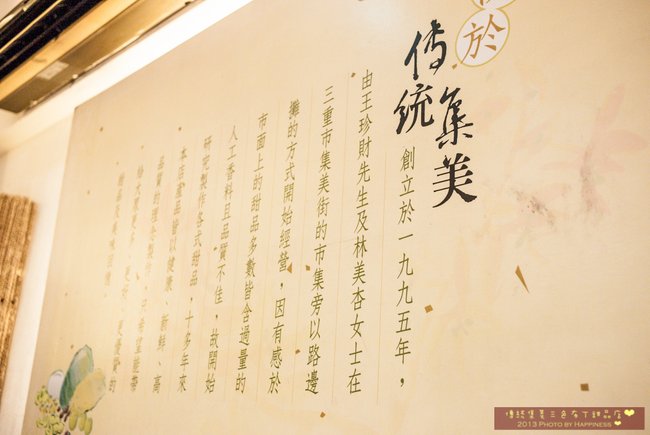 於
傳統
集美
創立於一九九五年，
由王珍財先生及林美杏女士在
三重市集美街的市集旁以路邊
攤的方式開始經營，因有感於
市面上的甜品多數皆含過量的
人工香料且品質不佳，故開始
研究製作各式甜品，十多年來
本店產品皆以健康、新鮮、高
品質的理念製作，只希望能帶
給大家更多、更好、更優質的
甜品及美味回憶。
傳統集美三色布丁甜品店
2013 PHOTO BY HAPPINESS